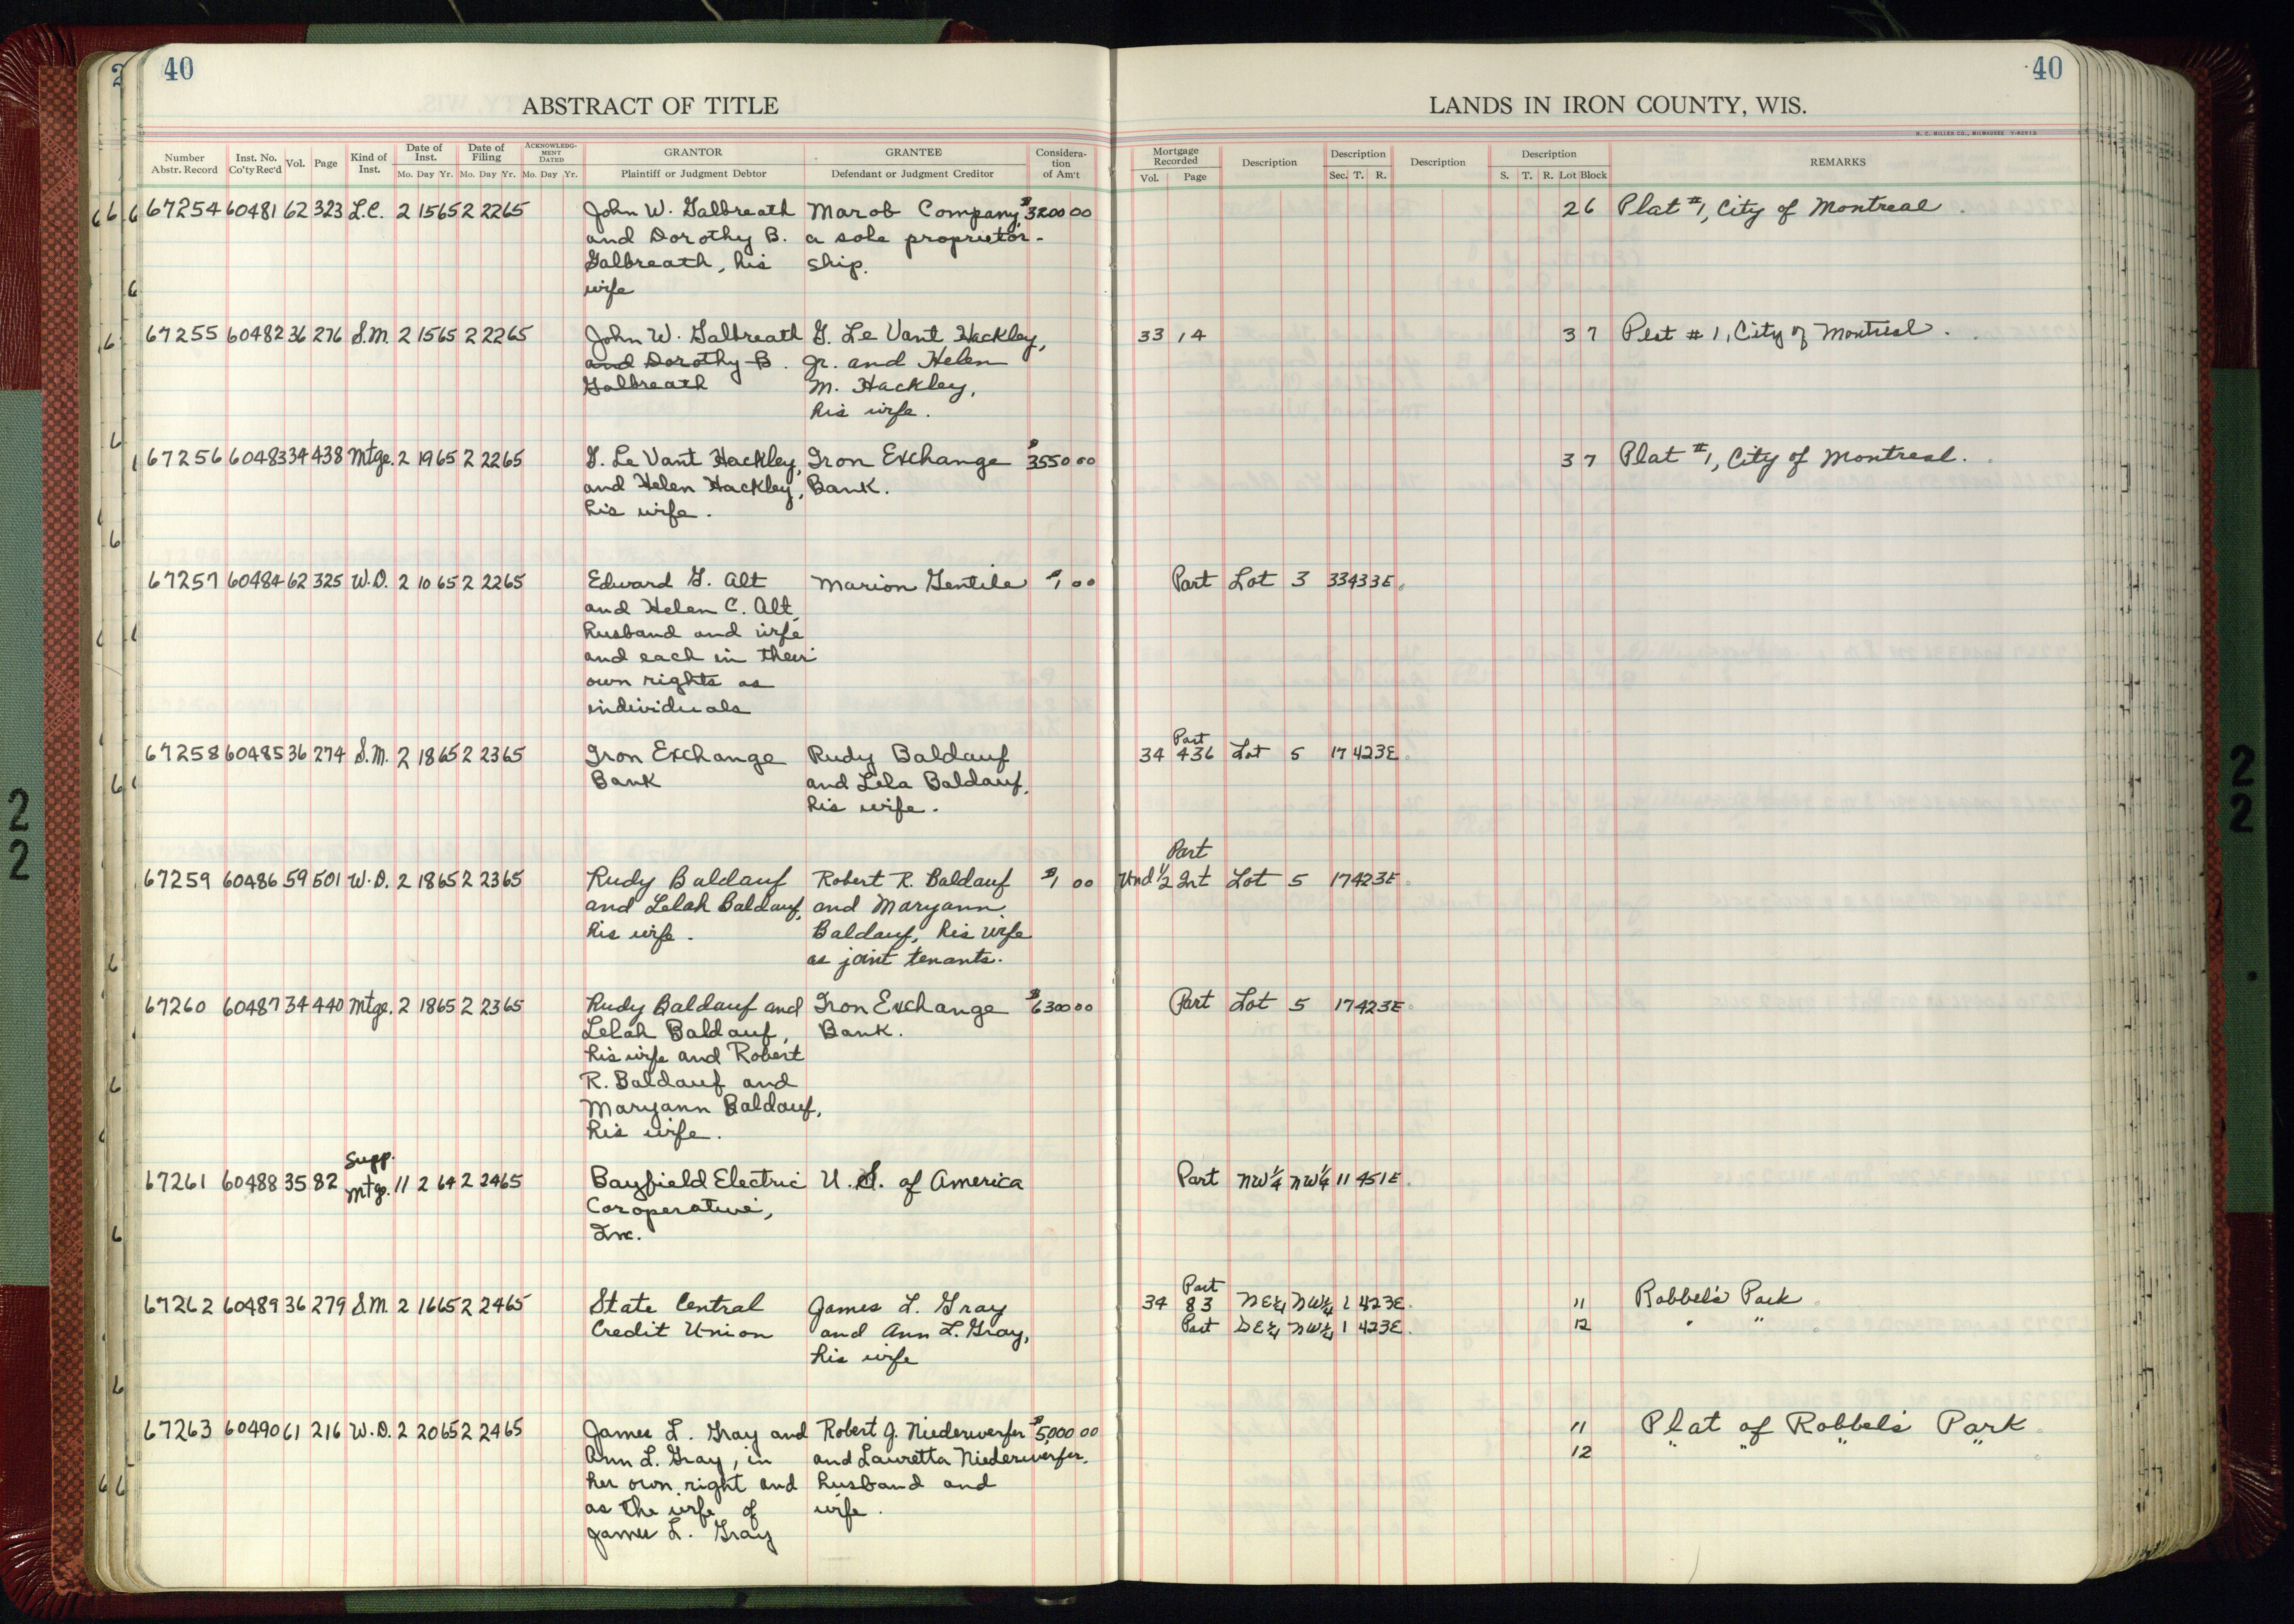 40
40
ABSTRACT OF TITLE
LANDS IN IRON COUNTY, WIS.
H. C. MILLER CO., MILWAUKEE
Number Abstr. Record Inst. No. Co'ty Rec'd Vol. Page Kind of Inst. Date of Inst. Mo. Day Yr. Date of Filing Mo. Day Yr. ACKNOWLEDGMENT DATED Mo. Day Yr. GRANTOR Plaintiff or Judgment Debtor GRANTEE Defendant or Judgment Creditor Consideration of Am't
Mortgage Recorded Vol. Page Description Description Sec. T. R. Description Description S. T. R. Lot Block REMARKS
67254 60481 62 323 L.C. 2 15 65 2 22 65 John W. Galbreath Marob Company, $3200 00 26 Plat #1, City of Montreal
and Dorothy B. a sole proprietor-
Galbreath, his ship.
wife
67255 60482 36 276 S.M. 2 15 65 2 22 65 John W. Galbreath G. Le Vant Hackley, 33 14 37 Plat #1, City of Montreal.
and Dorothy B. Jr. and Helen
Galbreath M. Hackley,
his wife.
67256 60483 34 438 Mtge. 2 19 65 2 22 65 G. Le Vant Hackley, Iron Exchange $3550 00 37 Plat #1, City of Montreal.
and Helen Hackley, Bank.
his wife.
67257 60484 62 325 W.D. 2 10 65 2 22 65 Edward G. Alt Marion Gentile $1 00 Part Lot 3 33 43 3E
and Helen C. Alt,
husband and wife
and each in their
own rights as
individuals
Part
67258 60485 36 274 S.M. 2 18 65 2 23 65 Iron Exchange Rudy Baldauf 34 436 Lot 5 17 42 3E
Bank and Lela Baldauf,
his wife.
Part
67259 60486 59 601 W.D. 2 18 65 2 23 65 Rudy Baldauf Robert R. Baldauf $1 00 Und 1/2 Int Lot 5 17 42 3E
and Lelah Baldauf, and Maryann
his wife. Baldauf, his wife
as joint tenants.
67260 60487 34 440 Mtge. 2 18 65 2 23 65 Rudy Baldauf and Iron Exchange $6300 00 Part Lot 5 17 42 3E
Lelah Baldauf, Bank.
his wife and Robert
R. Baldauf and
Maryann Baldauf,
his wife.
Supp.
67261 60488 35 82 Mtge. 11 2 64 2 24 65 Bayfield Electric U. S. of America Part NW¼ NW¼ 11 45 1E
Cooperative,
Inc.
Part
67262 60489 36 279 S.M. 2 16 65 2 24 65 State Central James L. Gray 34 83 NE¼ NW¼ 1 42 3E 11 Robbel's Park
Credit Union and Ann L. Gray, Part SE¼ NW¼ 1 42 3E 12 " "
his wife
67263 60490 61 216 W.D. 2 20 65 2 24 65 James L. Gray and Robert J. Niederwerfer $5,000 00 11 Plat of Robbel's Park
Ann L. Gray, in and Lauretta Niederwerfer, 12 " " " "
her own right and husband and
as the wife of wife.
James L. Gray
22
22